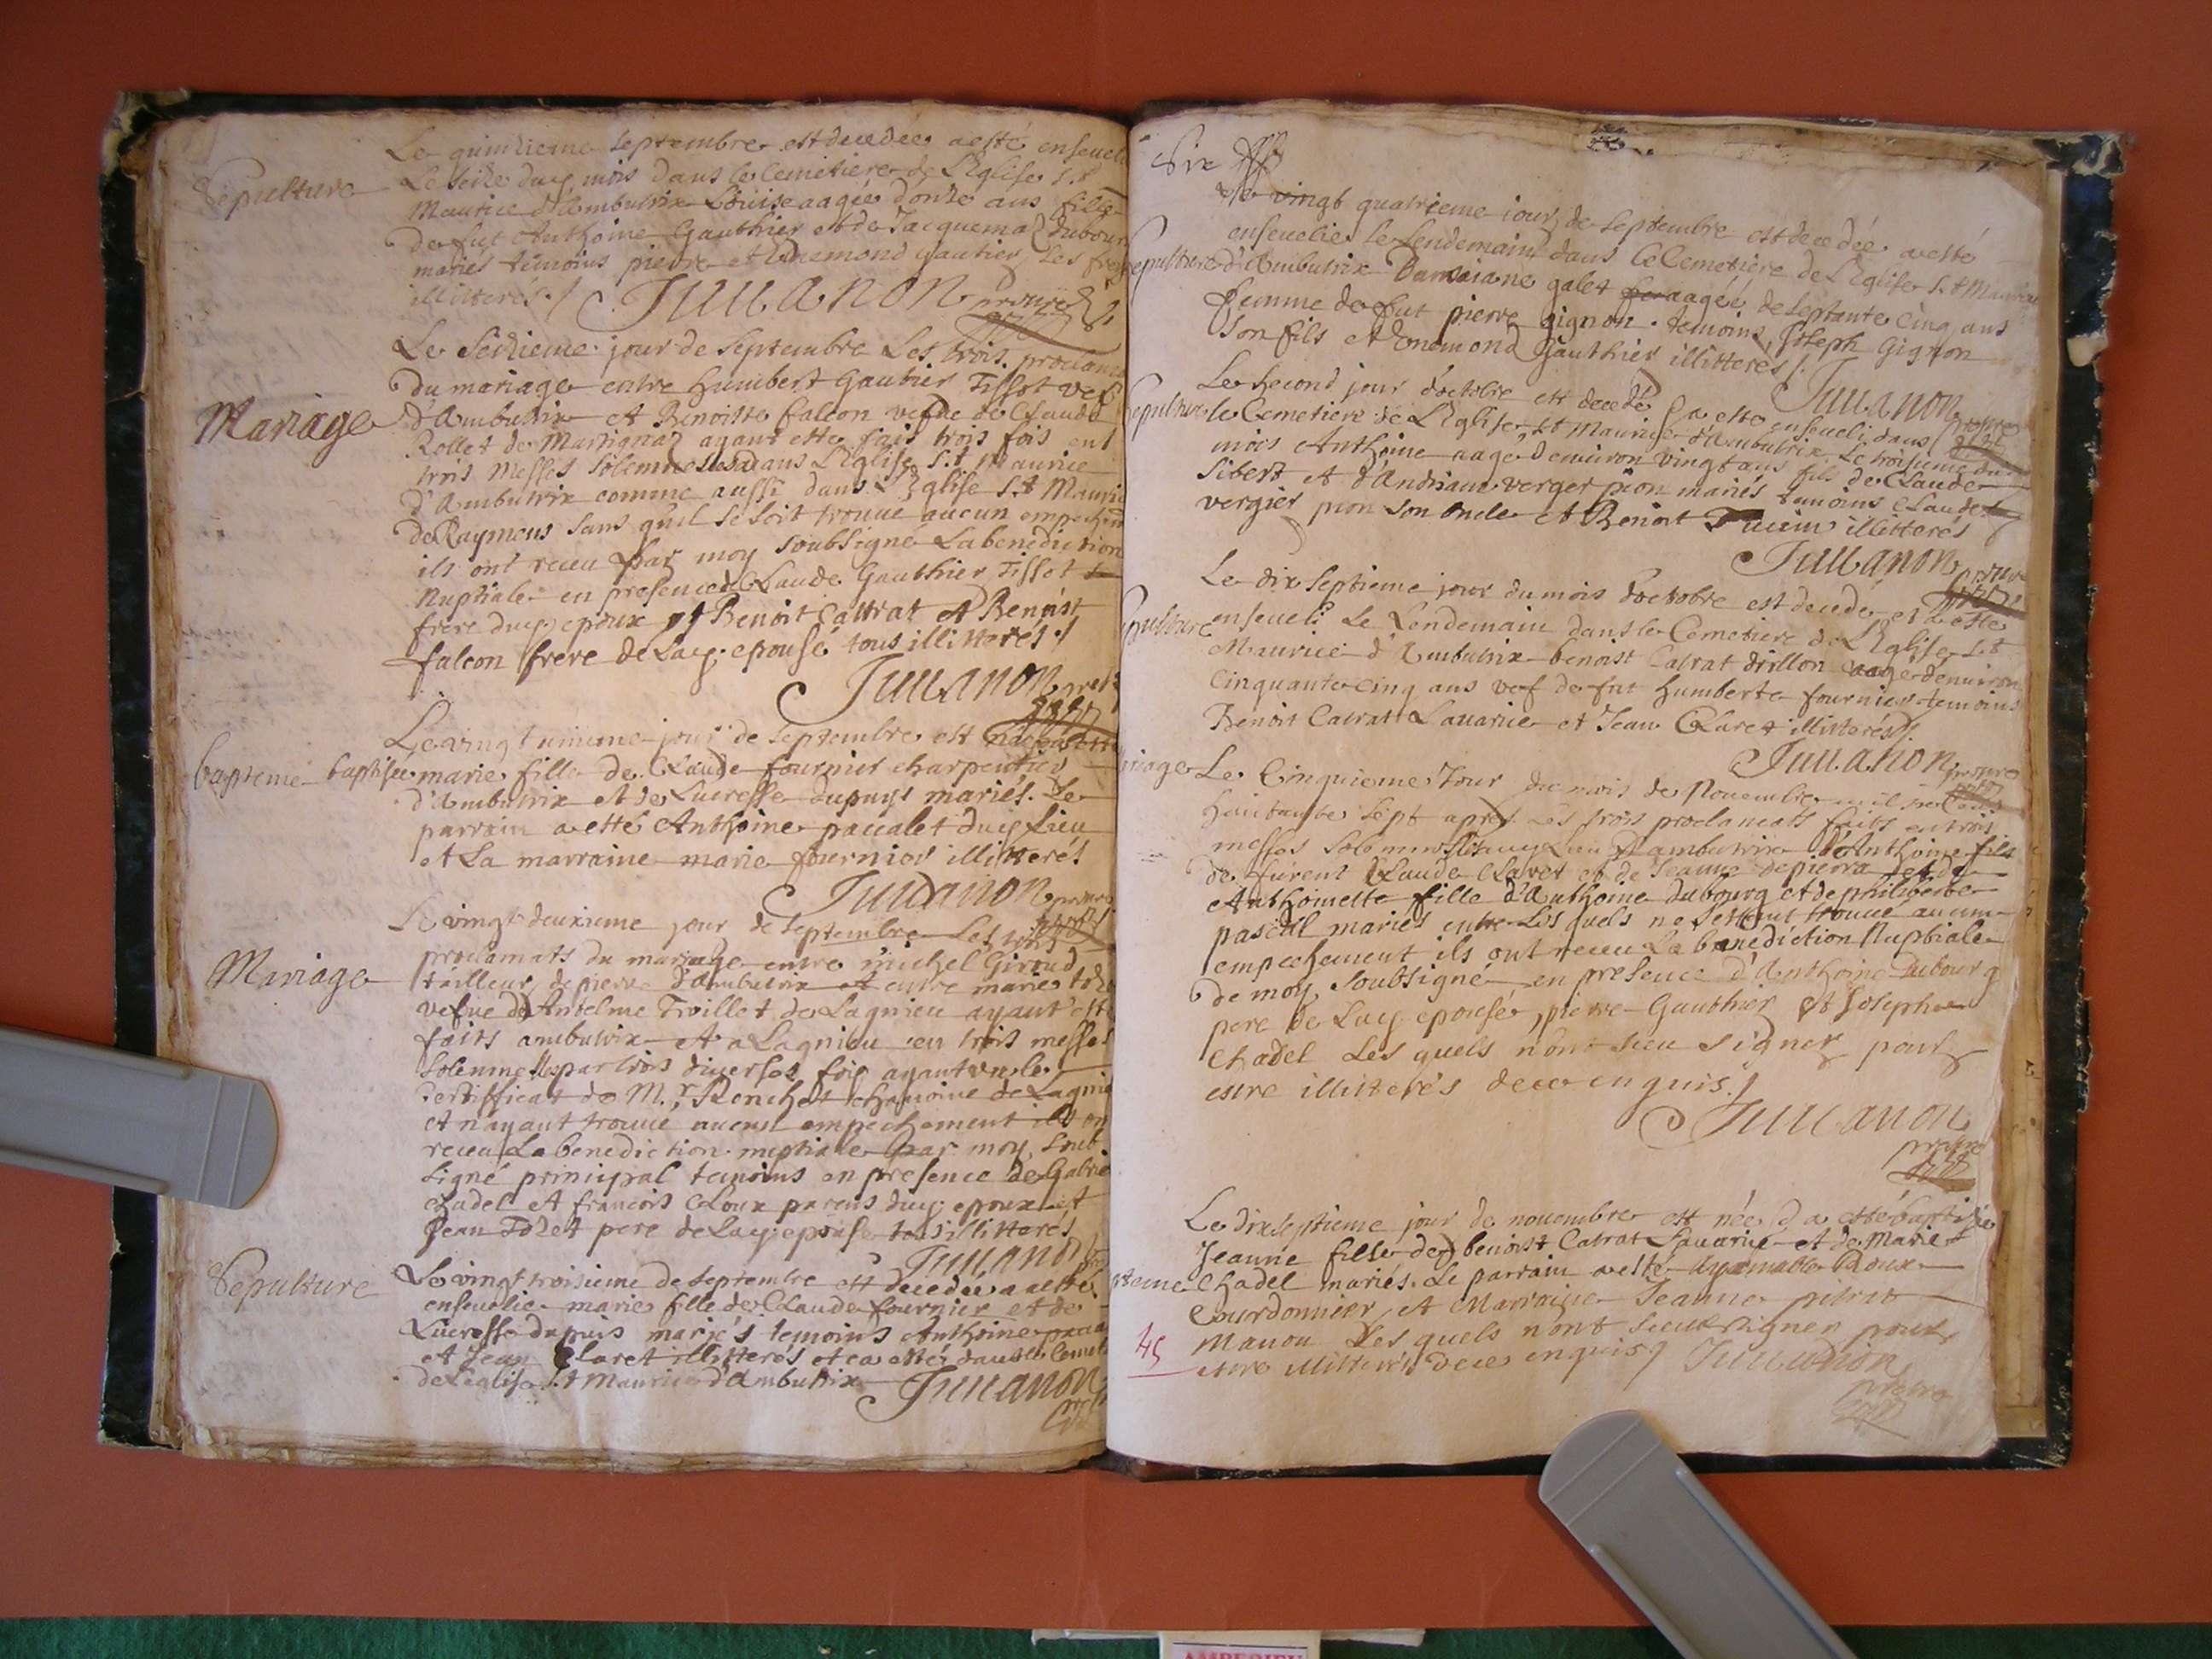 Sepulture
Le quinzieme septembre est decedée aesté enseueli
Le seize ducy mois dans le Cemetiere de L'Eglise s.t
Maurice d'Ambutrix Loüise aagée d'onze ans fille
de fut Anthoine Gauthier et de Jacquema Dubour
mariés temoins pierre et Enemond gautier Les freres
illitterés ./ Jullanon
Mariage
Le Seizieme jour de Septembre Les trois proclama
du mariage entre humbert Gautier Tissot vef
d'Ambutrix et Benoitte falcon vefue de Claude
Rollet de Martignaz ayant este fais trois fois en
trois Messes solemnelles dans L'Eglise S.t Maurice
d'Ambutrix comme aussi dans L'Eglise S.t Mauric
de Raymeus sans qu'il se soit trouue aucun empechem
ils ont receu par moy soubsigne La benediction
Nuptiale en presence de Claude Gauthier Tissot
frere ducy epoux et Benoit Cattrat et Benoist
falcon frere de Lacy. epousé tous illitterés ./
Jullanon
bapteme
Le vingt unieme jour de Septembre est
baptisée marie fille de Claude fournier charpentier
d'Ambutrix et de Lucresse dupuys mariés. Le
parrain a esté Anthoine paccalet ducy Lieu
et La marraine marie fournier illitterés
Jullanon
Mariage
Le vingt deuxieme jour de Septembre Les trois
proclamats du mariage entre michel Giroud
tailleur de pierre d'Ambutrix et entre marie
vefue de Antelme Troillet de Lagnieu ayant esté
faits ambutrix et a Lagnieu en trois messes
solemnelles par trois diuerses fois ayant vu le
Certifficat de M.r Renchet chanoine de Lagnie
et n'ayant trouue aucun empechement ils on
receu La benediction nuptiale par moy soub
signé principal temoins en presence de Gabrie
chadel et francois Roux parens ducy epoux et
Jean pere de Lacy epouse tous illitterés
Jullanon
Sepulture
Le vingt troisieme de Septembre est decedée a esté
enseuelie marie fille de Claude fournier et de
Lucresse dupuis mariés temoins Anthoine pacca
et Jean Claret illitterés et ca esté dans le Cemet
de Leglise S.t Maurice d'Ambutrix Jullanon
Six
Le vingt quatrieme iour de Septembre est decedée a esté
enseuelie le Lendemain dans le Cemetiere de L'Eglise S.t Maurice
Sepulture d'Ambutrix Damaiane galet aagée de Septante Cinq ans
femme de fut pierre gignon. temoins Joseph Gignon
son fils et Enemond Gauthier illitterés ./
Jullanon
Le Second jour d'octobre est decedé a esté enseueli dans
Sepulture le Cemetiere de L'Eglise S.t Maurice d'Ambutrix Le troisieme du
mois Anthoine aage d'enuiron vingt ans fils de Claude
Sibert et d'Andriane verger pion mariés temoins Claude
vergier pion son oncle et Benoit illitterés
Jullanon
Le dix Septieme jour du mois d'octobre est decedé et a esté
Sepulture enseueli Le Lendemain dans le Cemetiere de L'Eglise S.t
Maurice d'Ambutrix benoist Catrat drillon aagé d'enuiron
Cinquante cinq ans vef de fut humberte fournier temoins
Benoit Catrat Lauarice et Jean Claret illitterés ./
Jullanon
mariage Le Cinquieme Jour du mois de Nouembre mil six Cents
huitante Sept apres Les trois proclamats faits en trois
messes solemnelles aucy Lieu d'ambutrix d'Anthoine fils
de furent Claude Claret et de Jeanne depierra et de
Anthoinette fille d'Anthoine Dubourg et de philiberte
pascal mariés entre Les quels ne s'estant trouue aucun
empechement ils ont receu La benediction Nuptiale
de moy soubsigné en presence d'Anthoine Dubourg
pere de Lacy epousé, pierre Gauthier et Joseph
Chadel Les quels n'ont sceu signer pour
estre illitterés de ce enquis ./
Jullanon
prestre
Le dixseptieme jour de nouembre est née et a esté baptisée
Jeanne fille de benoist Catrat Lauarice et de Marie
Chadel mariés. Le parrain a esté Roux
Courdonnier, et Marraine Jeanne pitrat
45
Manon Les quels n'ont sceu signer pour
estre illitterés de ce enquis Jullanon
prestre